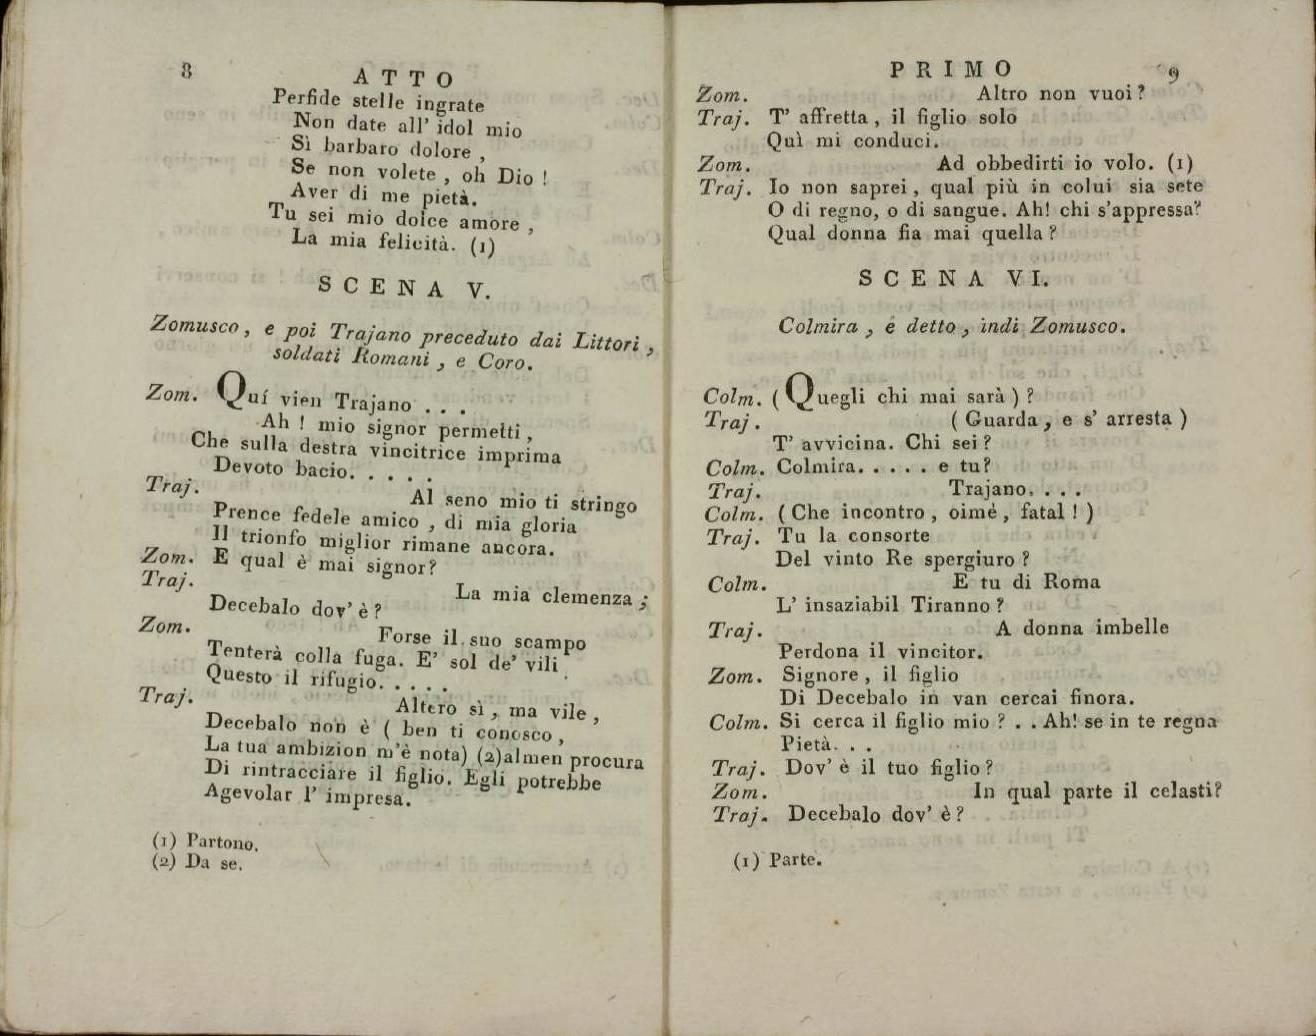 8
ATTO
Perfide stelle ingrate
Non date all' idol mio
Sì barbaro dolore ,
Se non volete , oh Dio !
Aver di me pietà.
Tu sei mio dolce amore ,
La mia felicità. (1)
SCENA V.
Zomusco, e poi Trajano preceduto dai Littori ,
soldati Romani , e Coro.
Zom. Quí vien Trajano . . .
Ah ! mio signor permetti ,
Che sulla destra vincitrice imprima
Devoto bacio. . . . .
Traj. Al seno mio ti stringo
Prence fedele amico , di mia gloria
Il trionfo miglior rimane ancora.
Zom. E qual è mai signor?
Traj. La mia clemenza ;
Decebalo dov' è ?
Zom. Forse il suo scampo
Tenterà colla fuga. E' sol de' vili
Questo il rifugio. . . . .
Traj. Altero sì , ma vile ,
Decebalo non è ( ben ti conosco ,
La tua ambizion m'è nota) (2) almen procura
Di rintracciare il figlio. Egli potrebbe
Agevolar l' impresa.
(1) Partono.
(2) Da se.
PRIMO
9
Zom. Altro non vuoi ?
Traj. T' affretta , il figlio solo
Quì mi conduci.
Zom. Ad obbedirti io volo. (1)
Traj. Io non saprei , qual più in colui sia sete
O di regno, o di sangue. Ah! chi s'appressa?
Qual donna fia mai quella ?
SCENA VI.
Colmira , e detto , indi Zomusco.
Colm. ( Quegli chi mai sarà ) ?
Traj. ( Guarda , e s' arresta )
T' avvicina. Chi sei ?
Colm. Colmira. . . . . e tu?
Traj. Trajano. . . .
Colm. ( Che incontro , oimè , fatal ! )
Traj. Tu la consorte
Del vinto Re spergiuro ?
Colm. E tu di Roma
L' insaziabil Tiranno ?
Traj. A donna imbelle
Perdona il vincitor.
Zom. Signore , il figlio
Di Decebalo in van cercai finora.
Colm. Si cerca il figlio mio ? . . Ah! se in te regna
Pietà. . .
Traj. Dov' è il tuo figlio ?
Zom. In qual parte il celasti?
Traj. Decebalo dov' è ?
(1) Parte.